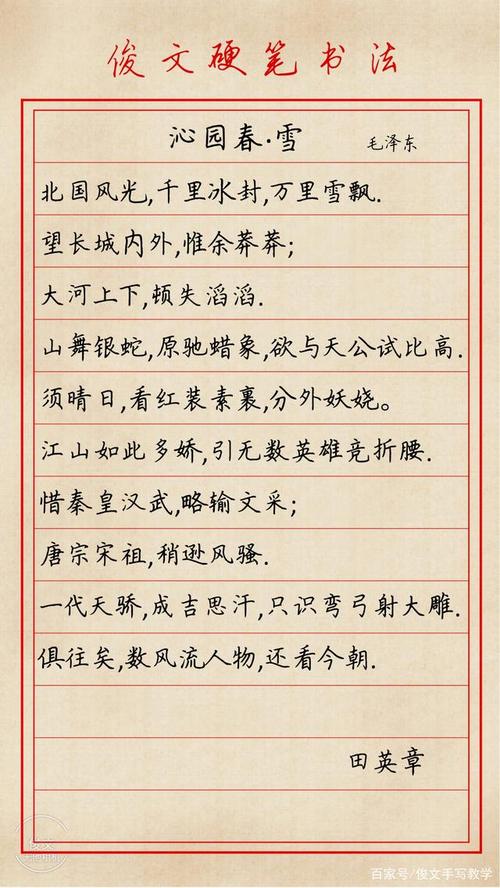 俊文硬笔书法
沁园春·雪 毛泽东
北国风光,千里冰封,万里雪飘.
望长城内外,惟余莽莽;
大河上下,顿失滔滔.
山舞银蛇,原驰蜡象,欲与天公试比高.
须晴日,看红装素裹,分外妖娆。
江山如此多娇,引无数英雄竞折腰.
惜秦皇汉武,略输文采;
唐宗宋祖,稍逊风骚.
一代天骄,成吉思汗,只识弯弓射大雕.
俱往矣,数风流人物,还看今朝.
田英章
俊文
百家号/俊文手写教学